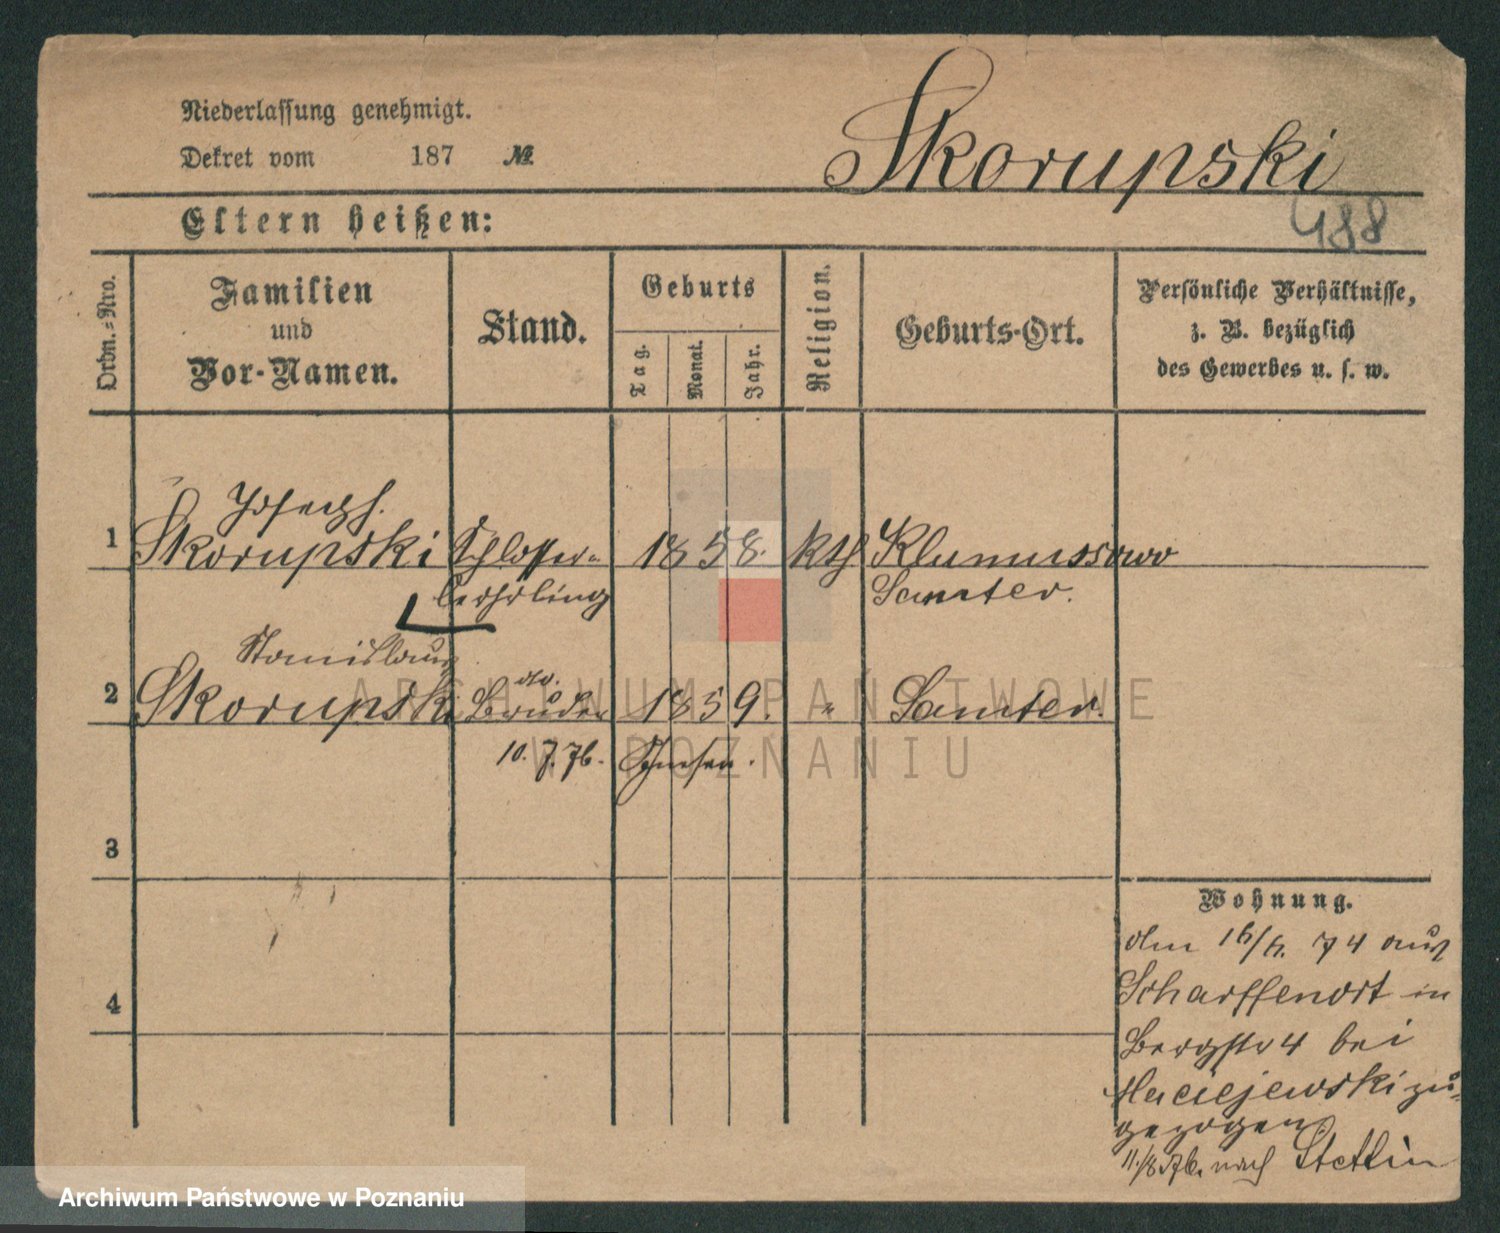 Niederlassung genehmigt.
Dekret vom 187 №
Skorupski
488
Eltern heißen:
Ordn.=Nro.
Familien
und
Vor-Namen.
Stand.
Geburts
Tag.
Monat.
Jahr.
Religion.
Geburts-Ort.
Persönliche Verhältnisse,
z. B. bezüglich
des Gewerbes u. s. w.
Joseph.
1 Skorupski Schlosser= 1858. kth
Lehrling Samter.
Stanislaus
2 Skorupski dto. Bruder 1859. " Samter.
10. 7. 76.
3
4
Wohnung.
den 16/6. 74 aus
Scharffenort in
Bergstr 4 bei
Maciejewski zu=
gezogen.
11./8 76. nach Stettin
ARCHIWUM PAŃSTWOWE
W POZNANIU
Archiwum Państwowe w Poznaniu